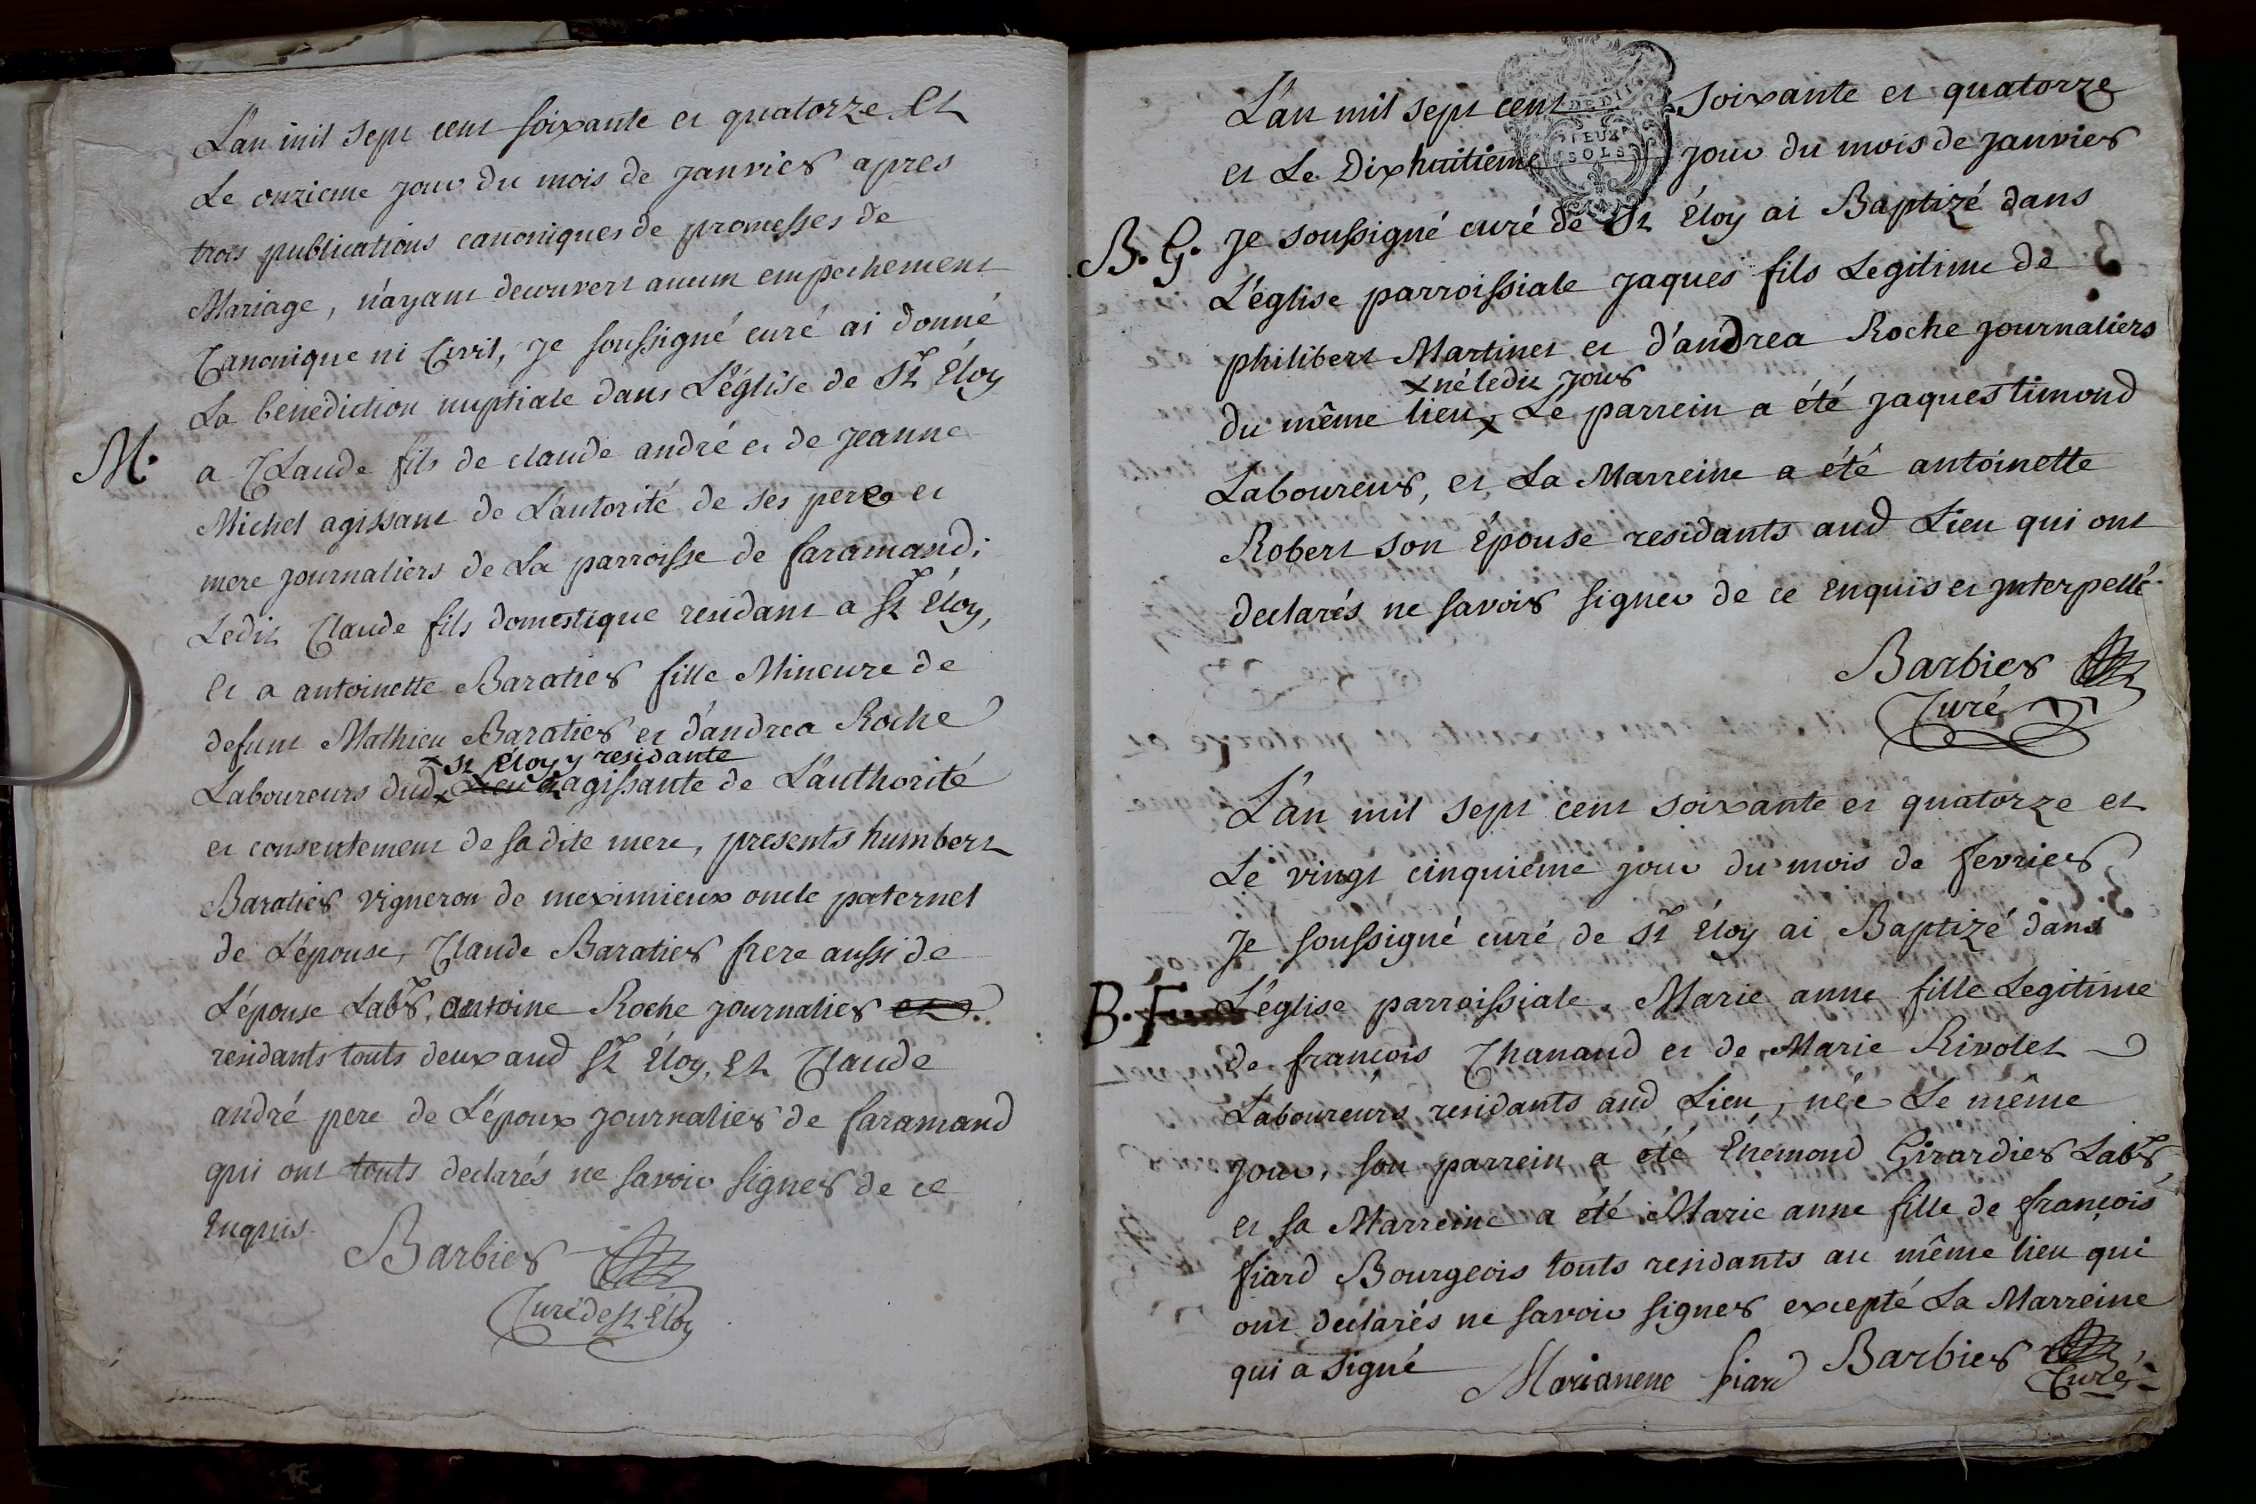 L'an mil sept cent soixante et quatorze et
Le onzieme jour du mois de janvier apres
trois publications canoniques de promesses de
Mariage, n'ayant decouvert aucun empechement
Canonique ni Civil, je soussigné curé ai donné
La benediction nuptiale dans L'église de St Éloy
M.
a Claude fils de claude andré et de jeanne
Michel agissant de L'autorité de ses pere et
mere journaliers de La parroisse de faramand;
Ledit Claude fils domestique residant a St Éloy,
et a antoinette Baratier fille Mineure de
defunt Mathieu Baratier et d'andrea Roche
x St Éloy y residante
Laboureurs dud x Lieu agissante de L'authorité
et consentement de sa dite mere, presents humbert
Baratier vigneron de meximieux oncle paternel
de L'épouse, Claude Baratier frere aussi de
L'épouse Labr, antoine Roche journalier et
residants touts deux aud St Éloy, Et Claude
andré pere de L'époux journalier de faramand
qui ont touts declarés ne savoir signer de ce
Enquis.
Barbier
Curé de St Éloy
DE DEUX
SOLS
L'an mil sept cent soixante et quatorze
et Le Dixhuitieme jour du mois de janvier
B. G. je soussigné curé de St Éloy ai Baptizé dans
L'église parroissiale jaques fils Legitime de
philibert Martinet et d'andrea Roche journaliers
x né ledit jour
du même lieu x Le parrein a été jaques timond
Laboureur, et La Marreine a été antoinette
Robert son Épouse residants aud Lieu qui ont
declarés ne savoir signer de ce Enquis et jnterpellé.
Barbier
Curé
L'an mil sept cent soixante et quatorze et
Le vingt cinquieme jour du mois de fevrier
je soussigné curé de St Éloy ai Baptizé dans
B. F. L'église parroissiale, Marie anne fille Legitime
de francois Chanaud et de Marie Rivolet
Laboureurs residants aud Lieu, née Le même
jour, son parrein a été Énemond Girardier Labr,
et sa Marreine a été Marie anne fille de françois
fiard Bourgeois touts residants au même lieu qui
ont declarés ne savoir signer excepté La Marreine
qui a signé Marianene fiard Barbier
Curé